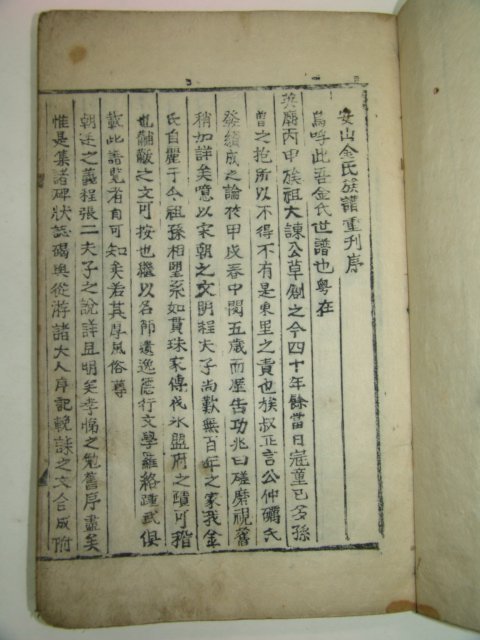 安山金氏族譜重刊序
嗚呼此吾金氏世譜也粤在
英廟丙甲族祖大諫公草剏之今四十年餘當日冠童已多孫
曾之抱所以不得不有是東里之責也族叔正言公仲礪氏
發續成之論於甲戌春中閱五歲而屢告功兆曰磋席視舊
稍加詳矣噫以宋朝之文明程夫子尚歎無百年之家我金
氏自麗于今祖孫相望系如貫珠家傳代承盟府之蹟可稽
也黼黻之文可按也繼以名節遺逸蔭行文學羅絡踵武俱
載此譜覽者自可知矣若其厚風俗尊
朝廷之義程張二夫子之說詳且明矣孝悌之勉舊序盡矣
惟是集諸碑狀誌碣與從游諸大人序記輓誄之文合成附